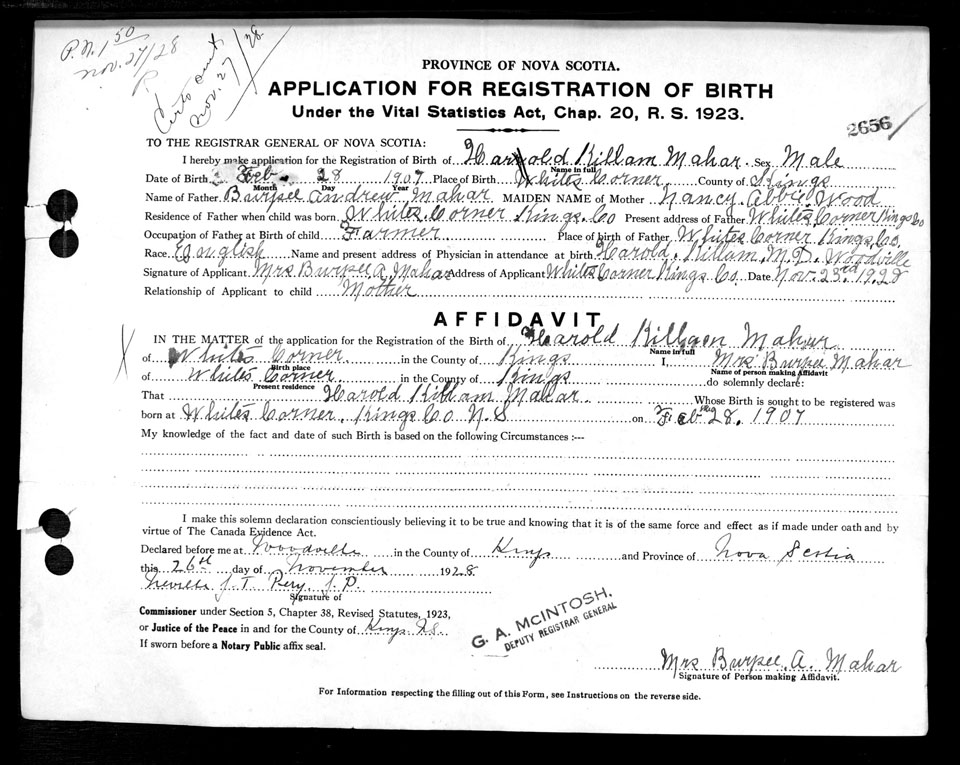 P.N. 1 50
Nov. 27/28
R
Nov. 27/28
PROVINCE OF NOVA SCOTIA.
APPLICATION FOR REGISTRATION OF BIRTH
Under the Vital Statistics Act, Chap. 20, R. S. 1923.
2656
TO THE REGISTRAR GENERAL OF NOVA SCOTIA:
I hereby make application for the Registration of Birth of Harold Killam Mahar Sex Male
Name in full
Date of Birth Feb. 28 1907 Place of Birth Whites Corner County of Kings
Month Day Year
Name of Father Burpee Andrew Mahar MAIDEN NAME of Mother Nancy Abbie Wood
Residence of Father when child was born Whites Corner Kings Co Present address of Father Whites Corner Kings Co
Occupation of Father at Birth of child Farmer Place of birth of Father Whites Corner Kings Co.
Race English Name and present address of Physician in attendance at birth Harold Killam M.D. Woodville
Signature of Applicant Mrs Burpee A. Mahar Address of Applicant Whites Corner Kings Co. Date Nov. 23rd 1928
Relationship of Applicant to child Mother
AFFIDAVIT
IN THE MATTER of the application for the Registration of the Birth of Harold Killam Mahar
Name in full
of Whites Corner in the County of Kings I, Mrs Burpee Mahar
Birth place Name of person making Affidavit
of Whites Corner in the County of Kings do solemnly declare:
Present residence
That Harold Killam Mahar Whose Birth is sought to be registered was
born at Whites Corner, Kings Co N.S on Feb 28. 1907
My knowledge of the fact and date of such Birth is based on the following Circumstances :---
I make this solemn declaration conscientiously believing it to be true and knowing that it is of the same force and effect as if made under oath and by
virtue of The Canada Evidence Act.
Declared before me at Woodville in the County of Kings and Province of Nova Scotia
this 26th day of November 1928
J. P.
Signature of
Commissioner under Section 5, Chapter 38, Revised Statutes, 1923,
or Justice of the Peace in and for the County of Kings N.S.
If sworn before a Notary Public affix seal.
G. A. McINTOSH.
DEPUTY REGISTRAR GENERAL
Mrs Burpee. A. Mahar
Signature of Person making Affidavit.
For Information respecting the filling out of this Form, see Instructions on the reverse side.